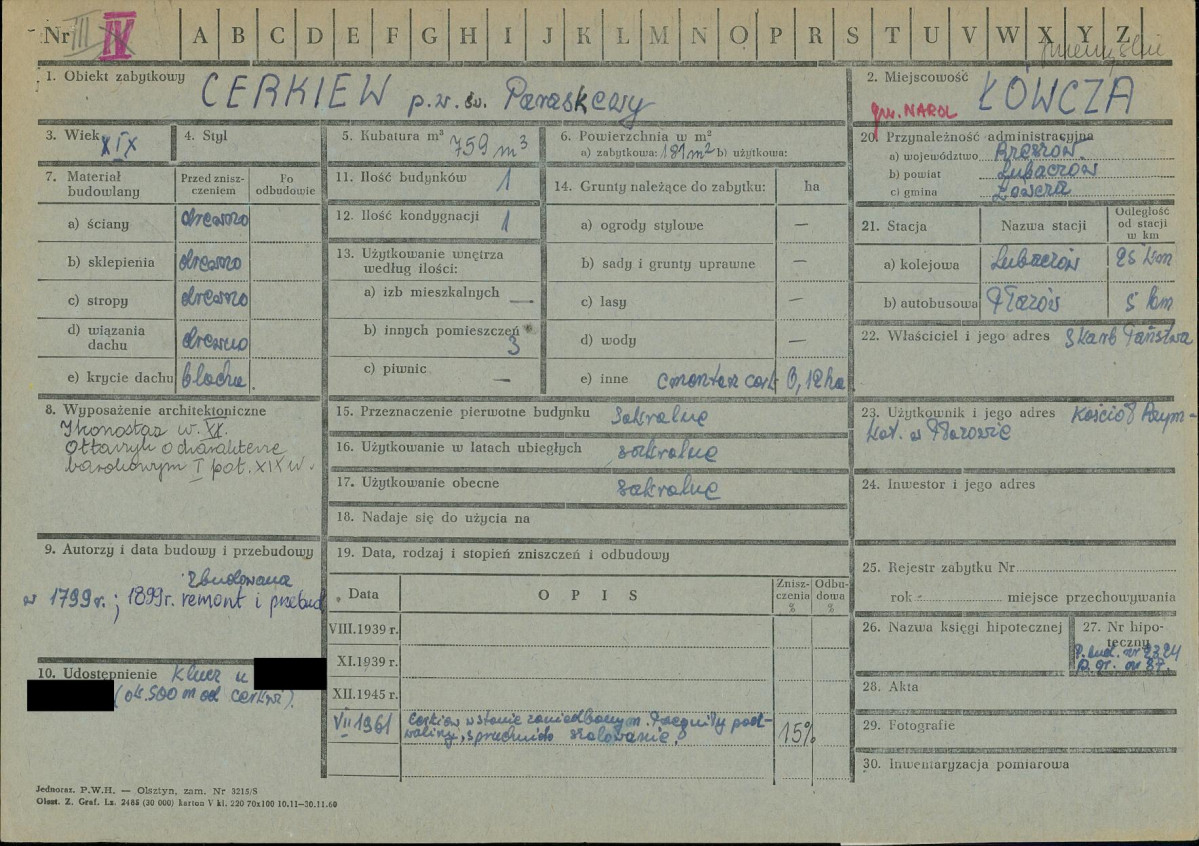 Nr III IV A B C D E F G H I J K L M N O P R S T U V W X Y Z
1. Obiekt zabytkowy CERKIEW p.w. św. Paraskewy
2. Miejscowość ŁÓWCZA
gm. NAROL
3. Wiek XIX
4. Styl
5. Kubatura m³ 759 m³
6. Powierzchnia w m²
a) zabytkowa: 181 m² b) użytkowa:
20. Przynależność administracyjna
a) województwo Rzeszów
b) powiat Lubaczów
c) gmina Łowcza
7. Materiał budowlany
Przed znisz-
czeniem
Po
odbudowie
a) ściany drewno
b) sklepienia drewno
c) stropy drewno
d) wiązania
dachu drewno
e) krycie dachu blacha.
11. Ilość budynków 1
12. Ilość kondygnacji 1
13. Użytkowanie wnętrza
według ilości:
a) izb mieszkalnych —
b) innych pomieszczeń 3
c) piwnic —
14. Grunty należące do zabytku: ha
a) ogrody stylowe —
b) sady i grunty uprawne —
c) lasy —
d) wody —
e) inne cmentarz cerk 0,12 ha
21. Stacja Nazwa stacji
Odległość
od stacji
w km
a) kolejowa Lubaczów 25 km
b) autobusowa Płazów 5 km
22. Właściciel i jego adres Skarb Państwa
8. Wyposażenie architektoniczne
Ikonostaz w. XX.
Ołtarzyk o charakterze
barokowym I poł. XIX w.
15. Przeznaczenie pierwotne budynku sakralne
16. Użytkowanie w latach ubiegłych sakralne
17. Użytkowanie obecne sakralne
18. Nadaje się do użycia na
23. Użytkownik i jego adres Kościół Rzym-
kat. w Płazowie
24. Inwestor i jego adres
9. Autorzy i data budowy i przebudowy
Zbudowana
w 1799 r.; 1899 r. remont i przebud
10. Udostępnienie Klucz u
(ok. 500 m od cerkwi).
19. Data, rodzaj i stopień zniszczeń i odbudowy
Data OPIS
Znisz-
czenia
%
Odbu-
dowa
%
VIII.1939 r.
XI.1939 r.
XII.1945 r.
VII 1961 Cerkiew w stanie zaniedbanym. Przegniły pod-
waliny, spruchniało szalowanie. 15%
25. Rejestr zabytku Nr
rok miejsce przechowywania
26. Nazwa księgi hipotecznej
27. Nr hipo-
teczny
P. bud. nr 2324
P. gr. nr 87.
28. Akta
29. Fotografie
30. Inwentaryzacja pomiarowa
Jednoraz. P.W.H. — Olsztyn, zam. Nr 3215/S
Olszt. Z. Graf. Lz. 2485 (30 000) karton V kl. 220 70x100 10.11—30.11.60